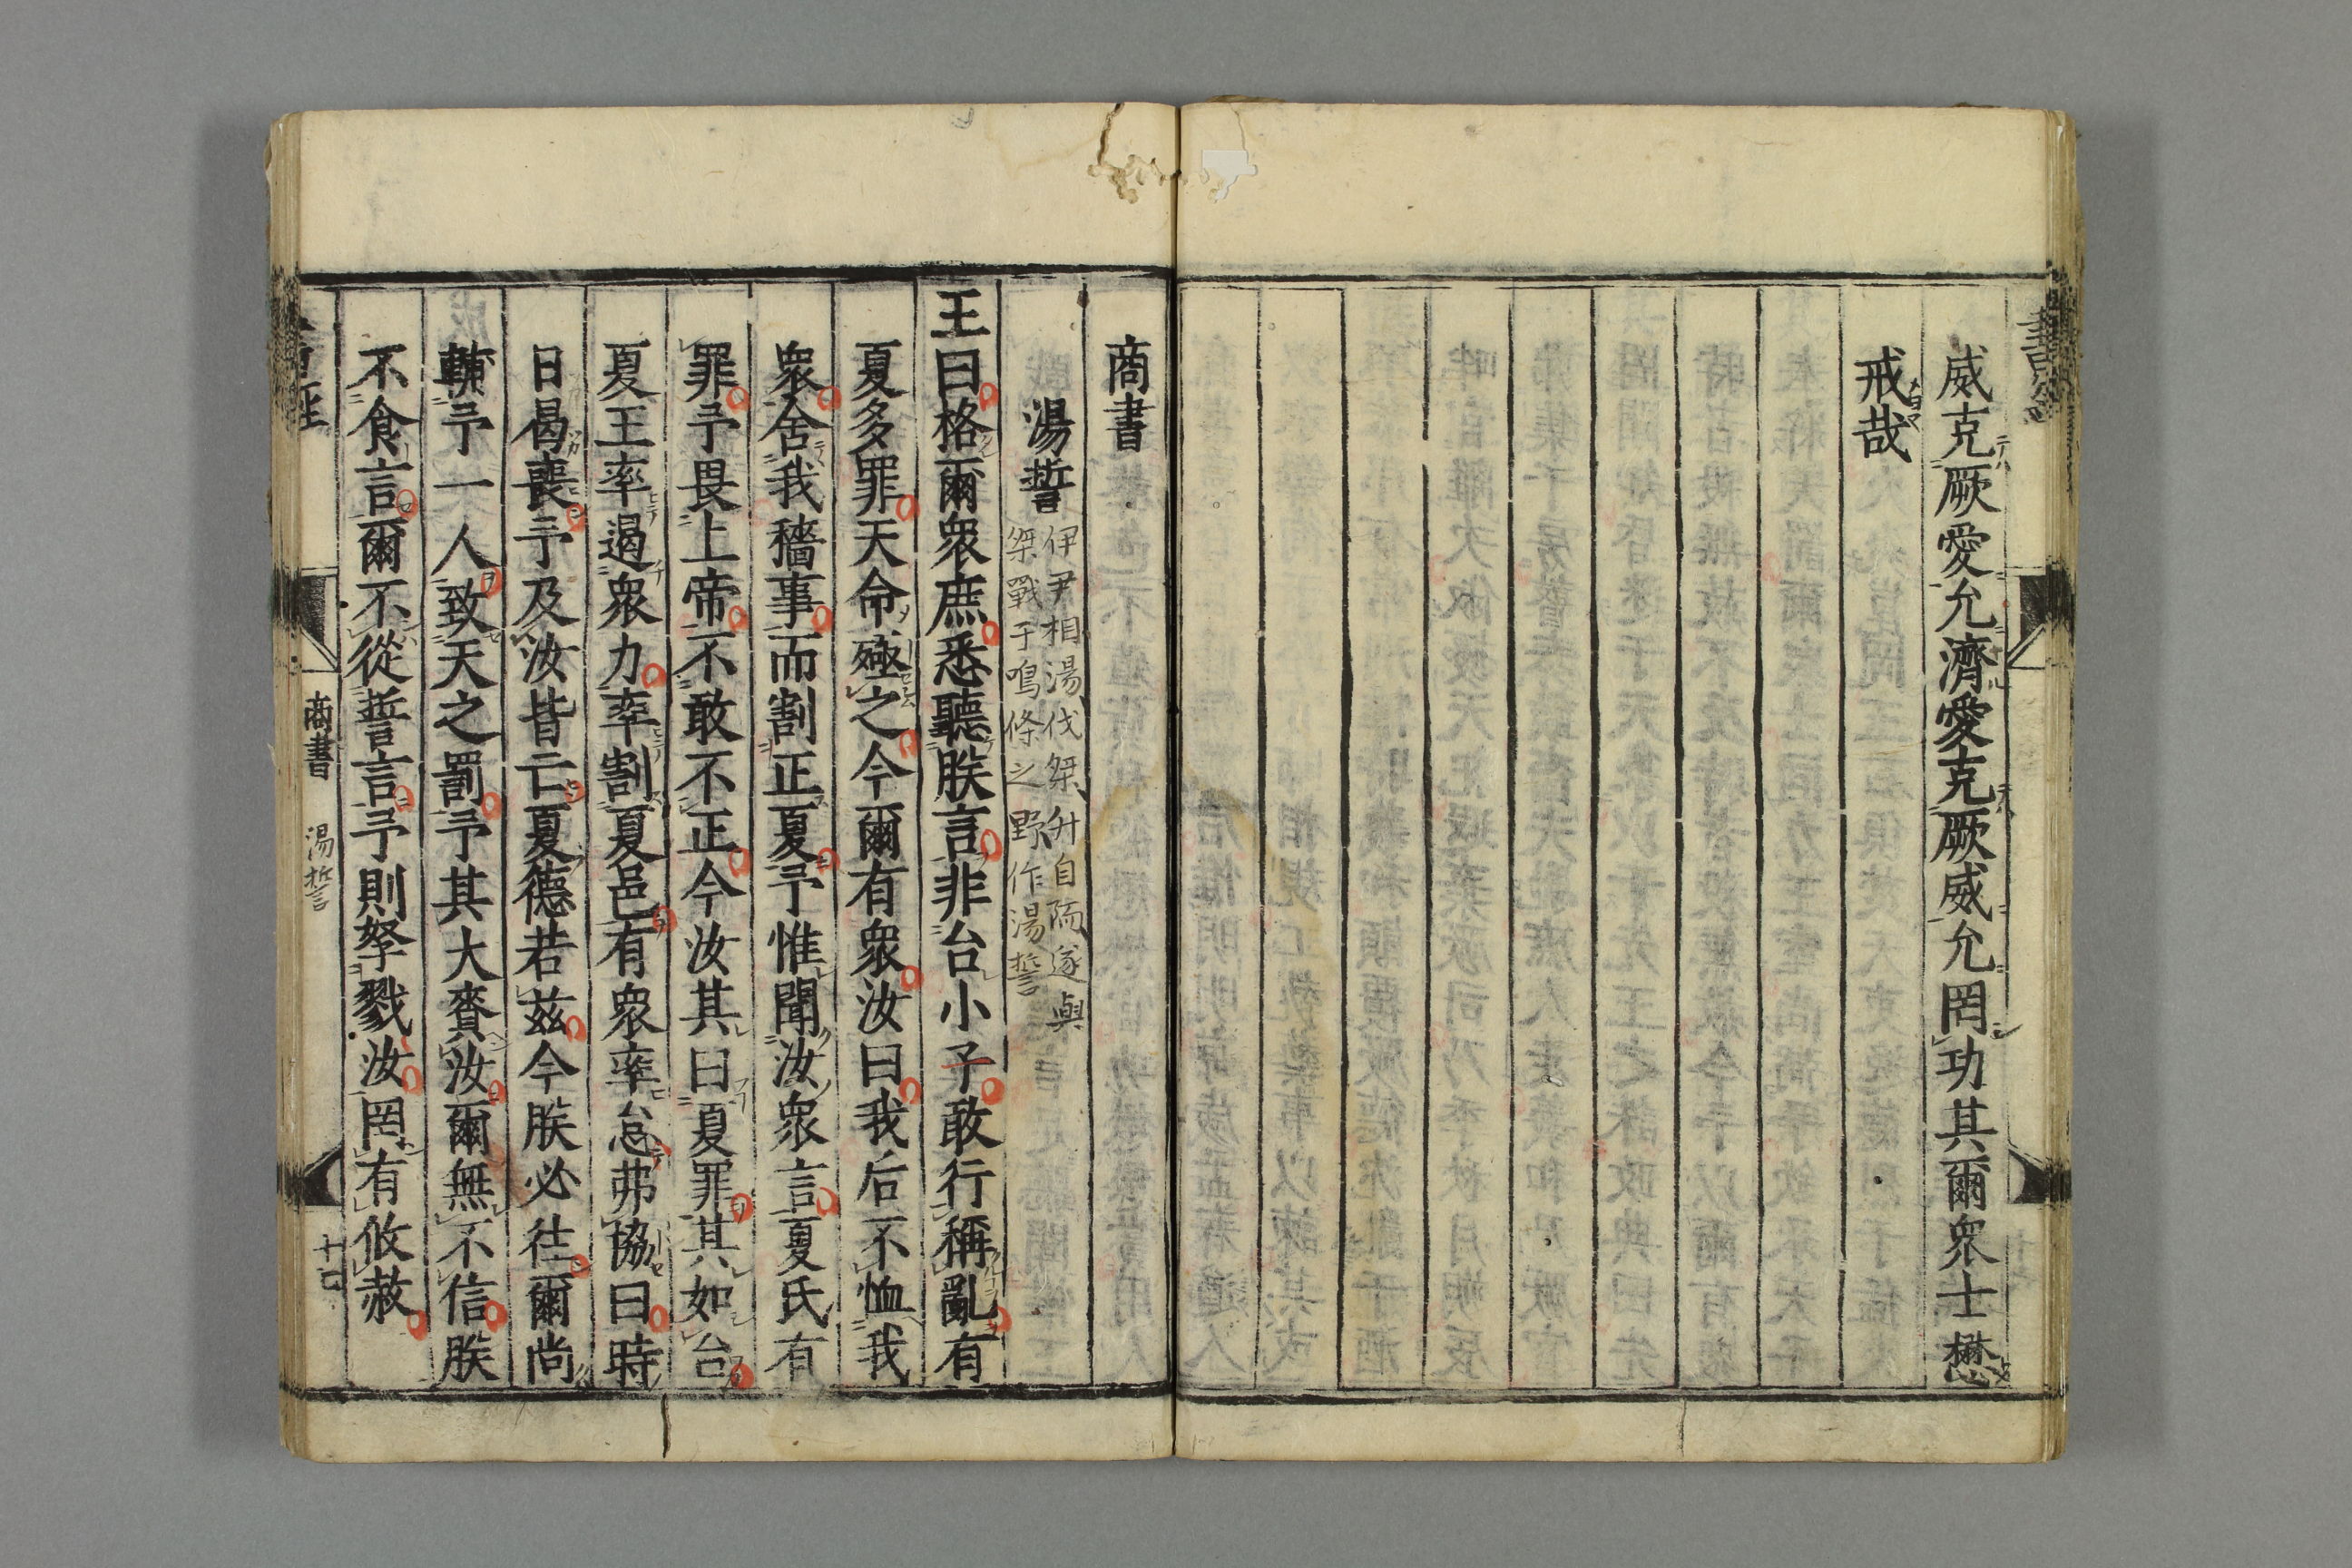 威克厥愛允濟愛克厥威允罔功其爾衆士懋
戒哉
商書
湯誓
伊尹相湯伐桀升自陑遂與
桀戰于鳴條之野作湯誓
王曰格爾衆庶悉聽朕言非台小子敢行稱亂有
夏多罪天命殛之今爾有衆汝曰我后不恤我
衆舍我穡事而割正夏予惟聞汝衆言夏氏有
罪予畏上帝不敢不正今汝其曰夏罪其如台
夏王率遏衆力率割夏邑有衆率怠弗協曰時
日曷喪予及汝皆亡夏德若茲今朕必往爾尚
輔予一人致天之罰予其大賚汝爾無不信朕
不食言爾不從誓言予則孥戮汝罔有攸赦
商書 湯誓